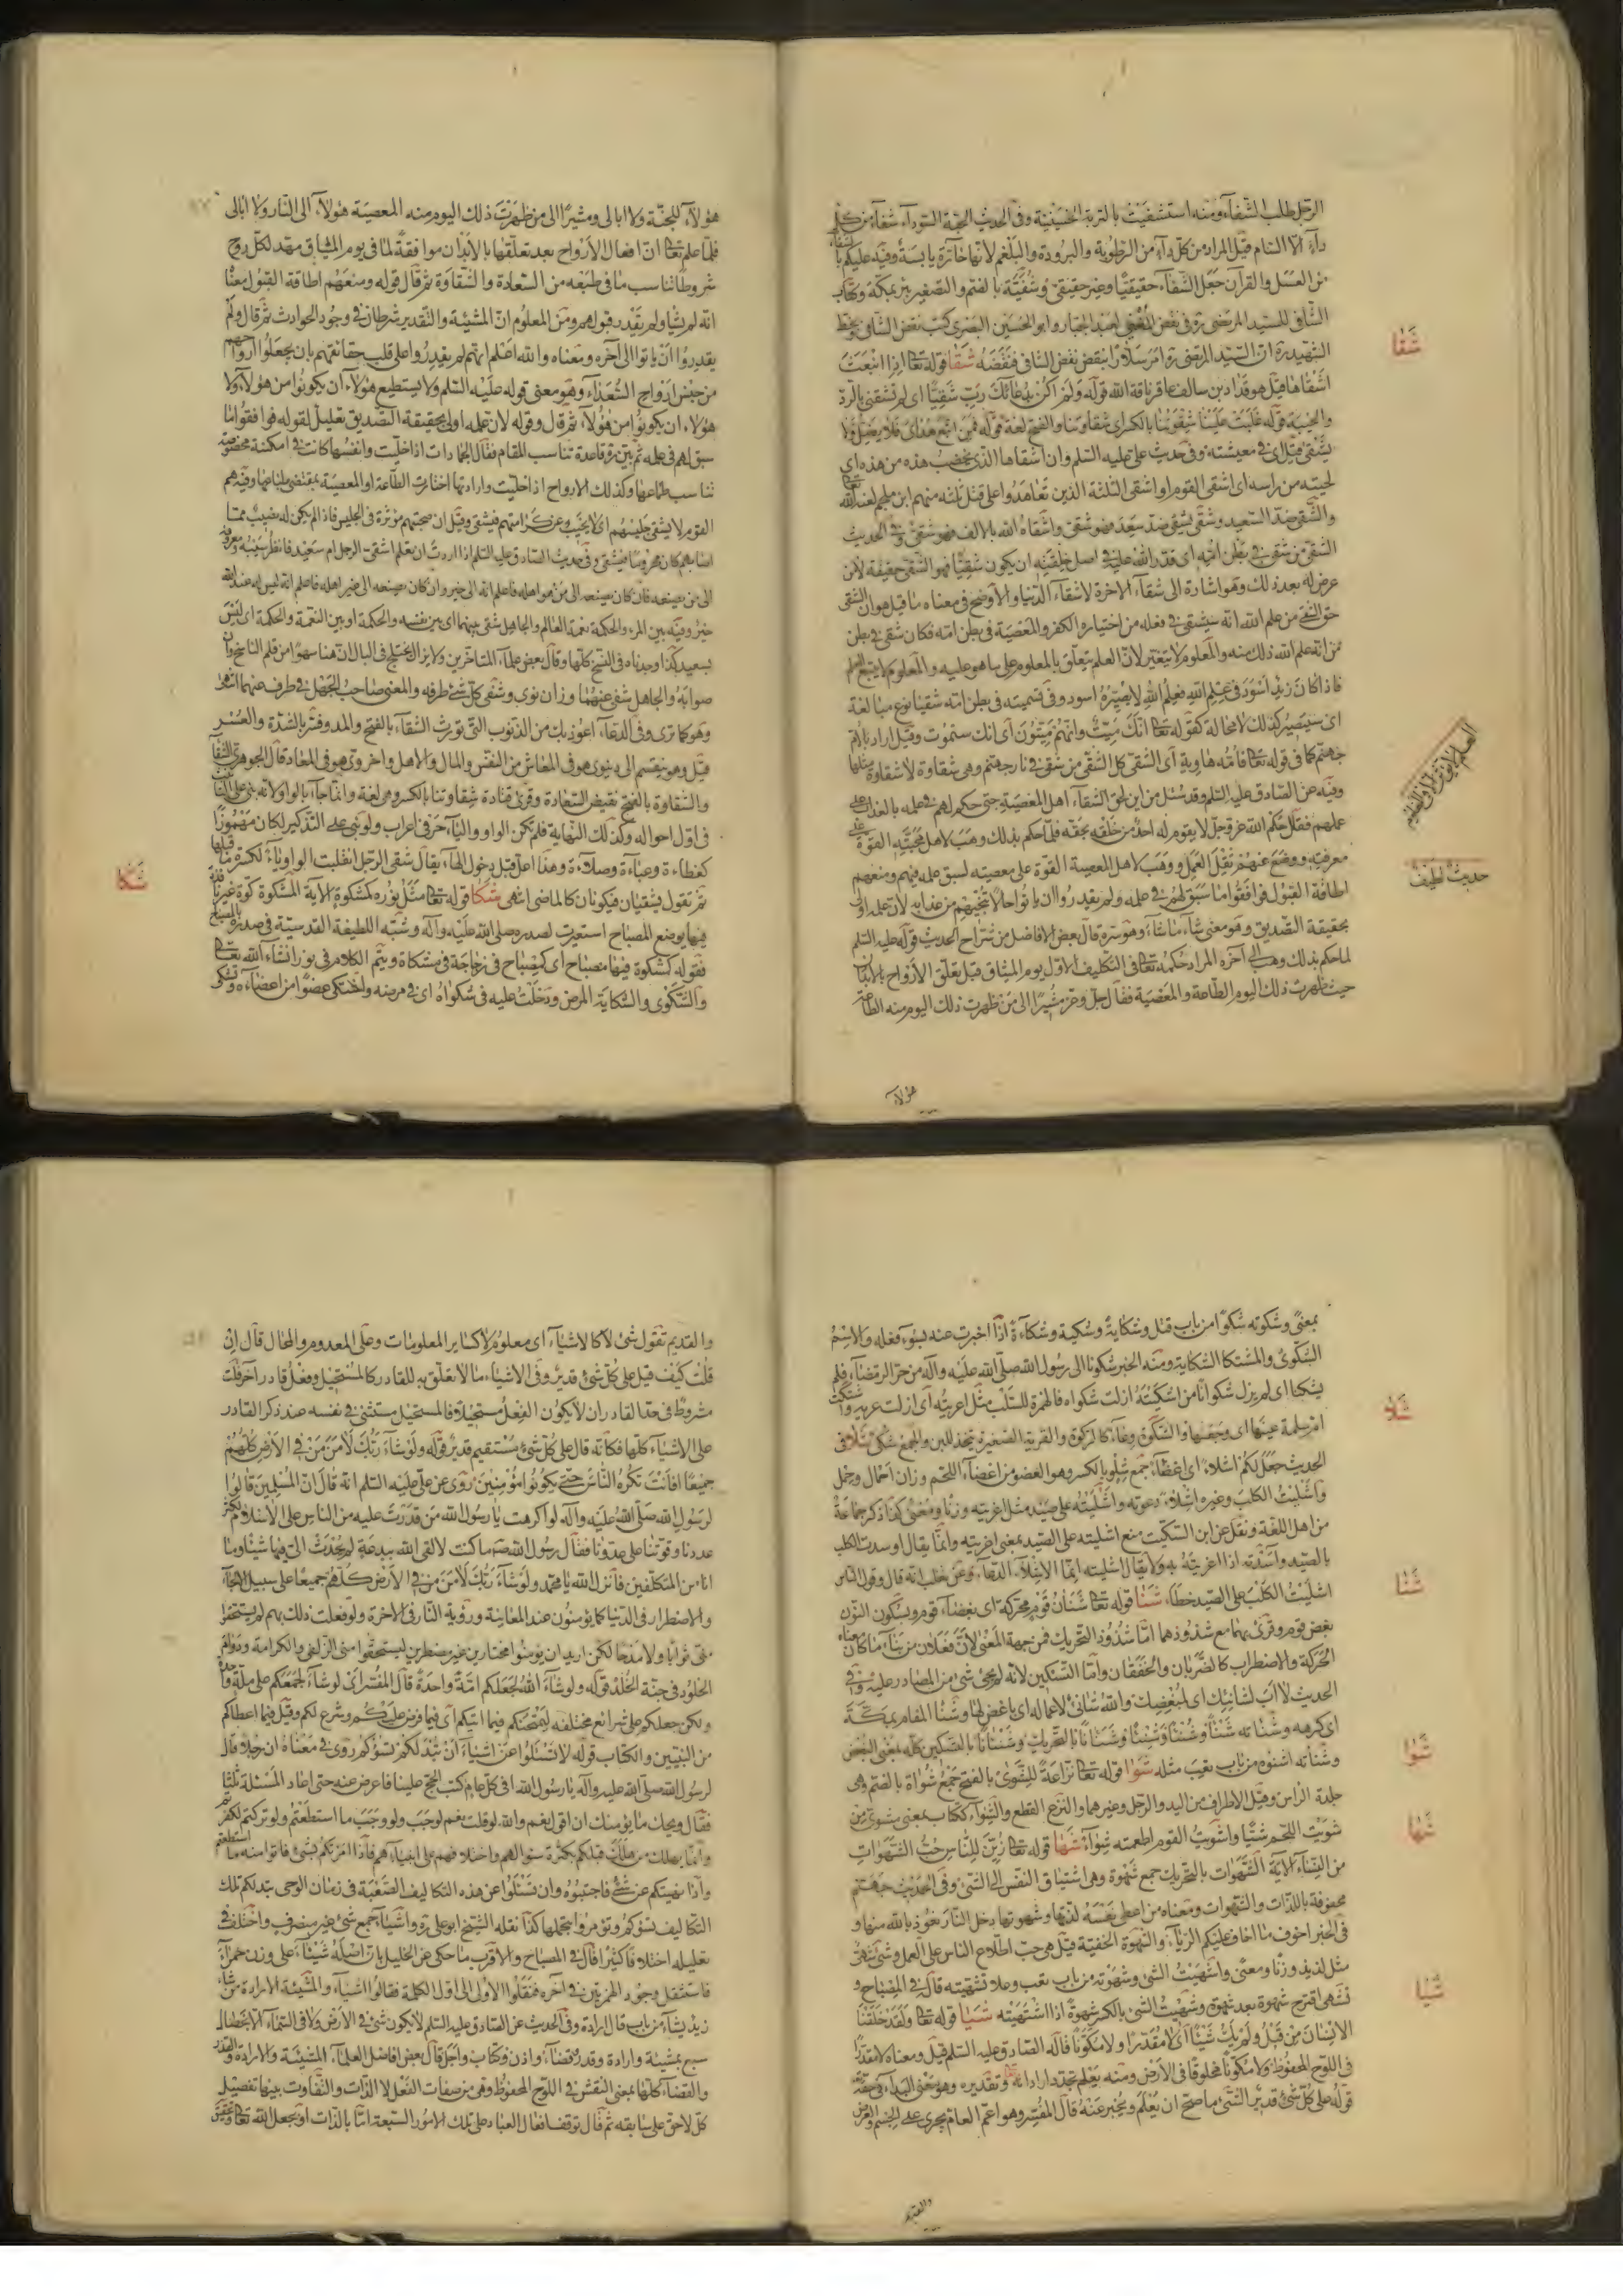 الرجل طلب الشفآء ومنه استشفيت بالتربة الحسينية وفى الحديث الحبة السودآء شفآء من كل
دآء الا السام قيل المراد من كل دآء من الرطوبة والبرودة والبلغم لانها حارة يابسة وفيه عليكم بالشفائين
من العسل والقرآن جعل الشفآء حقيقيا وغير حقيقى وشفية بالضم والتصغير بئر بمكة وكتاب
الشافى للسيد المرتضى ره فى نقض المغنى لعبد الجبار وابو الحسين البصرى كتب نقض الشافى بخط
الشهيد ره ان السيد المرتضى ره امر سلارا بنقض نقض الشافى فنقضه شقا قوله تعالى اذ انبعث
اشقاها قيل هو قدار بن سالف عاقر ناقة الله قوله ولم اكن بدعائك رب شقيا اى لم تشقنى بالرد
والخيبة قوله غلبت علينا شقوتنا بالكسر اى شقاوتنا والفتح لغة قوله فمن اتبع هداى فلا يضل ولا
يشقى قيل اى فى معيشته وفى حديث على عليه السلم وان اشقاها الذى يخضب هذه من هذه اى
لحيته من راسه اى اشقى القوم او اشقى الثلثة الذين تعاهدوا على قتل ثلثه منهم ابن ملجم لعنه الله
والشقى ضد السعيد وشقى يشقى ضد سعد فهو شقى واشقاه الله بالالف فهو شقى وفى الحديث
الشقى من شقى فى بطن امه اى قدر الله عليه فى اصل خلقته ان يكون شقيا فهو الشقى حقيقة لا من
عرض له بعد ذلك وهو اشارة الى شقآء الاخرة لا شقآء الدنيا والاوضح فى معناه ما قيل هو ان الشقى
حق الشقى من علم الله انه سيشقى فى فعله من اختياره الكفر والمعصية فى بطن امه فكان شقى فى بطن
من انه علم الله ذلك منه والمعلوم لا يتغير لان العلم يتعلق بالمعلوم على ما هو عليه والمعلوم لا يتبع العلم
فاذا كان زيد اسود فى علم الله فعلم الله لا يصيره اسود وفى تسميته فى بطن امه شقيا نوع مبالغة
اى سيصير كذلك لا محالة كقوله تعالى انك ميت وانهم ميتون اى انك ستموت وقيل اراد بالام
جهنم كما فى قوله تعالى فامه هاوية اى الشقى كل الشقى من شقى فى نار جهنم وهى شقاوة لا شقاوة مثلها
وفيه عن الصادق عليه السلم وقد سئل من اين لحق الشقآء اهل المعصية حتى حكم لهم فى علمه بالعذاب على
عملهم فقال حكم الله عز وجل لا يقوم له احد من خلقه بحقه فلما حكم بذلك وهب لاهل محبته القوة على
معرفته ووضع عنهم ثقل العمل ووهب لاهل المعصية القوة على معصيته لسبق علمه فيهم ومنعهم
اطاقة القبول فوافقوا ما سبق لهم فى علمه ولم يقدروا ان ياتوا حالا تنجيهم من عذابه لان علمه اولى
بحقيقة التصديق وهو معنى شآء ما شآء وهو سره قال بعض الافاضل من شراح الحديث قوله عليه السلم
لما حكم بذلك وهب الى آخره المراد حكمه تعالى فى التكليف الاول يوم الميثاق قبل تعلق الارواح بالابدان
حيث ظهرت ذلك اليوم الطاعة والمعصية فقال جل وعز مشيرا الى من ظهرت ذلك اليوم منه الطاعة
شفا
حديث لطيف
هؤلآء
هؤلآء للجنة ولا ابالى ومشيرا الى من ظهرت ذلك اليوم منه المعصية هؤلآء الى النار ولا ابالى
فلما علم تعالى ان افعال الارواح بعد تعلقها بالابدان موافقة لما فى يوم الميثاق مهد لكل روح
شروطا تناسب ما فى طبعه من السعادة والشقاوة ثم قال قوله ومنعهم اطاقة القبول معناه
انه لم يشا ولم يقدر قبولهم ومن المعلوم ان المشيئة والتقدير شرطان فى وجود الحوادث ثم قال ولم
يقدروا ان ياتوا الى آخره ومعناه والله اعلم انهم لم يقدروا على قلب حقائقهم بان يجعلوا ارواحهم
من جنس ارواح السعدآء وهو معنى قوله عليه السلم ولا يستطيع هؤلآء ان يكونوا من هؤلآء ولا
هؤلآء ان يكونوا من هؤلآء ثم قال وقوله لان علمه اولى بحقيقة التصديق تعليل لقوله فوافقوا ما
سبق لهم فى علمه ثم بين ره قاعدة تناسب المقام فقال الجمادات اذا خليت وانفسها كانت فى امكنة مخصوصة
تناسب طباعها وكذلك الارواح اذا خليت وارادتها اختارت الطاعة او المعصية بمقتضى طباعها وفيه هم
القوم لا يشقى جليسهم اى لا يخيب عن كرامتهم فيشقى وقيل ان صحبتهم مؤثرة فى الجليس فاذا لم يكن له نصيب مما
اصابهم كان محروما فيشقى وفى حديث الصادق عليه السلم اذا اردت ان تعلم اشقى الرجل ام سعيد فانظر سيبه ومعروفه
الى من يصنعه فان كان يصنعه الى من هو اهله فاعلم انه الى خير وان كان يصنعه الى غير اهله فاعلم انه ليس له عند الله
خير وفيه بين المرء والحكمة نعمة العالم والجاهل شقى بينهما اى بين نفسه والحكمة او بين النعمة والحكمة اى ليس
بسعيد كذا وجدناه فى النسخ كلها وقال بعض علمآء المتاخرين ولا يزال يختلج فى البال ان هنا سهوا من قلم الناسخ وان
صوابه والجاهل شفى عنهما وزان نوى وشفى كل شئ طرفه والمعنى صاحب الجهل فى طرف عنهما انتهى
وهو كما ترى وفى الدعآء اعوذ بك من الذنوب التى تورث الشقآء بالفتح والمد وفسر بالشدة والعسر
قيل وهو ينقسم الى دنيوى هو فى المعاش من النفس والمال والاهل واخروى هو فى المعاد قال الجوهرى الشقآء
والشقاوة بالفتح نقيض السعادة وقرئ قتادة شقاوتنا بالكسر وهى لغة وانما جآء بالواو لانه بنى على التانيث
فى اول احواله وكذلك النهاية فلم تكن الواو واليآء حرفى اعراب ولو بنى على التذكير لكان مهموزا
كعظاءة وعباءة وصلاءة وهذا اعل قبل دخول الهآء يقال شقى الرجل انقلبت الواو يآء لكسرة ما قبلها
ثم تقول يشقيان فيكونان كالماضى انتهى شكا قوله تعالى مثل نوره كمشكوة الاية المشكوة كوة غير نافذة
فيها يوضع المصباح استعيرت لصدره صلى الله عليه وآله وشبه اللطيفة القدسية فى صدره بالمصباح
فقوله كمشكوة فيها مصباح اى كمصباح فى زجاجة فى مشكاة ويتم الكلام فى نور انشآء الله تعالى
والشكوى والشكاية المرض ودخلت عليه فى شكواه اى فى مرضه واشتكى عضوا من اعضآءه وتشكى
شكا
بمعنى وشكوته شكوا من باب قتل وشكاية وشكية وشكاءة اذا اخبرت عنه بسوء فعله والاسم
الشكوى والمشتكا الشكاية ومنه الخبر شكونا الى رسول الله صلى الله عليه وآله من حر الرمضآء فلم
يشكنا اى لم يزل شكوانا من اشكيته ازلت شكواه فالهمزة للسلب مثل اعربته اى ازلت عربه واشتكت
ام سلمة عينها اى وجعتها والشكوى وعآء كالركوة والقربة الصغيرة يتخذ للبن والجمع شكى شلا فى
الحديث جعل لكم اشلآء اى اعضآء جمع شلو بالكسر وهو العضو من اعضآء اللحم وزان احمال وحمل
واشليت الكلب وغيره اشلآء دعوته واشليته على صيد مثل اغريته وزنا ومعنى كذا ذكر جماعة
من اهل اللغة ونقل عن ابن السكيت منع اشليته على الصيد بمعنى اغريته وانما يقال اوسدت الكلب
بالصيد واسدته اذا اغريته به ولا يقال اشليته انما الاشلآء الدعآء وعن ثعلب انه قال وقول الناس
اشليت الكلب على الصيد خطآء شنا قوله تعالى شنان قوم محركة اى بغضآء قوم وبسكون النون
بغض قوم وقرئ بهما مع شذوذهما اما شذوذ التحريك فمن جهة المعنى لان فعلان من بنآء ما كان معناه
الحركة والاضطراب كالضربان والخفقان واما التسكين لانه لم يجئ شئ من المصادر عليه وفى
الحديث لا اب لشانيك اى لمبغضك والله شانئ لاعماله اى باغض لها وشنا المقام بمكة
اى كرهه وشناته شنئا وشنئا وشنئا وشنانا بالتحريك وشنانا بالتسكين كله بمعنى البغض
وشناته اشنوه من باب تعب مثله شوا قوله تعالى نزاعة للشوى بالفتح جمع شواة بالضم وهى
جلدة الراس وقيل الاطراف من اليد والرجل وغيرهما والنزع القطع والشوآء ككتاب بمعنى مشوى من
شويت اللحم شيا واشويت القوم اطعمته شوآء شها قوله تعالى زين للناس حب الشهوات
من النسآء الاية الشهوات بالتحريك جمع شهوة وهى اشتياق النفس الى الشئ وفى الحديث جهنم
محفوفة باللذات والشهوات ومعناه من اعطى نفسه لذتها وشهوتها دخل النار نعوذ بالله منها و
فى الخبر اخوف ما اخاف عليكم الريآء والشهوة الخفية قيل هى حب اطلاع الناس على العمل وشئ شهى
مثل لذيذ وزنا ومعنى واشتهيت الشئ وشهوته من باب تعب وعلا تشهيته قال فى المصباح و
تشهى اقترح شهوة بعد شهوة وشهيت الشئ بالكسر شهوة اذا اشتهيته شيا قوله تعالى ولقد خلقنا
الانسان من قبل ولم يك شيئا اى لا مقدرا ولا مكونا قاله الصادق عليه السلم قيل ومعناه لا مقدرا
فى اللوح المحفوظ ولا مكونا مخلوقا فى الارض ومنه يعلم تجدد ارادته تعالى وتقديره وهو معنى البدآء فى حقه
قوله على كل شئ قدير الشئ ما صح ان يعلم ويخبر عنه قال المفسر وهو اعم العام يجرى على الجسم والعرض
شلا
شنا
شوا
شها
شيا
والقديم
والقديم تقول شئ لا كالاشيآء اى معلوم لا كساير المعلومات وعلى المعدوم والمحال قال ان
قلت كيف قيل على كل شئ قدير وفى الاشيآء ما لا تعلق به للقادر كالمستحيل وفعل قادر آخر قلت
مشروط فى حد القادر ان لا يكون الفعل مستحيلا فالمستحيل مستثنى فى نفسه عند ذكر القادر
على الاشيآء كلها فكانه قال على كل شئ مستقيم قدير قوله ولو شآء ربك لامن من فى الارض كلهم
جميعا افانت تكره الناس حتى يكونوا مؤمنين روى عن على عليه السلم انه قال ان المسلمين قالوا
لرسول الله صلى الله عليه وآله لو اكرهت يا رسول الله من قدرت عليه من الناس على الاسلام لكثر
عددنا وقوتنا على عدونا فقال رسول الله ص ما كنت لالقى الله ببدعة لم يحدث الى فيها شيئا وما
انا من المتكلفين فانزل الله يا محمد ولو شآء ربك لامن من فى الارض كلهم جميعا على سبيل الالجآء
والاضطرار فى الدنيا كما يؤمنون عند المعاينة ورؤية النار فى الاخرة ولو فعلت ذلك بهم لم يستحقوا
منى ثوابا ولا مدحا لكن اريد ان يومنوا مختارين غير مضطرين ليستحقوا منى الزلفى والكرامة ودوام
الخلود فى جنة الخلد قوله ولو شآء الله لجعلكم امة واحدة قال المفسر اى لو شآء لجمعكم على ملة واحدة
ولكن جعلكم على شرائع مختلفة ليمتحنكم فيما اتيكم اى فيما فرض عليكم وشرع لكم وقيل فيما اعطاكم
من النبيين والكتاب قوله لا تسئلوا عن اشيآء ان تبد لكم تسؤكم روى فى معناه ان رجلا قال
لرسول الله صلى الله عليه وآله يا رسول الله افى كل عام كتب الحج علينا فاعرض عنه حتى اعاد المسئلة ثلثا
فقال ويحك ما يؤمنك ان اقول نعم والله لو قلت نعم لوجب ولو وجب ما استطعتم ولو تركتم لكفرتم
وانما هلك من هلك قبلكم بكثرة سؤالهم واختلافهم على انبيآءهم فاذا امرتكم بشئ فاتوا منه ما استطعتم
واذا نهيتكم عن شئ فاجتنبوه وان تسئلوا عن هذه التكاليف الصعبة فى زمان الوحى تبد لكم تلك
التكاليف تسؤكم وتؤمروا بتحملها كذا نقله الشيخ ابو على ره واشيآء جمع شئ غير منصرف واختلف فى
تعليله اختلافا كثيرا قال فى المصباح والاقرب ما حكى عن الخليل بان اصله شيئآء على وزن حمرآء
فاستثقل وجود الهمزتين فى آخره فنقلوا الاولى الى اول الكلمة فقالوا اشيآء والمشيئة الارادة من شآء
زيد يشآء من باب قال ارادة وفى الحديث عن الصادق عليه السلم لا يكون شئ فى الارض ولا فى السمآء الا بخصال
سبع بمشيئة وارادة وقدر وقضآء واذن وكتاب واجل قال بعض افاضل العلمآء المشيئة والارادة والقدر
والقضآء كلها بمعنى النقش فى اللوح المحفوظ وهى من صفات الفعل لا الذات والتفاوت بينها تفصيل
كل لاحق على سابقه ثم قال توقف افعال العباد على تلك الامور السبعة اما بالذات او بجعل الله تعالى وتحقيق